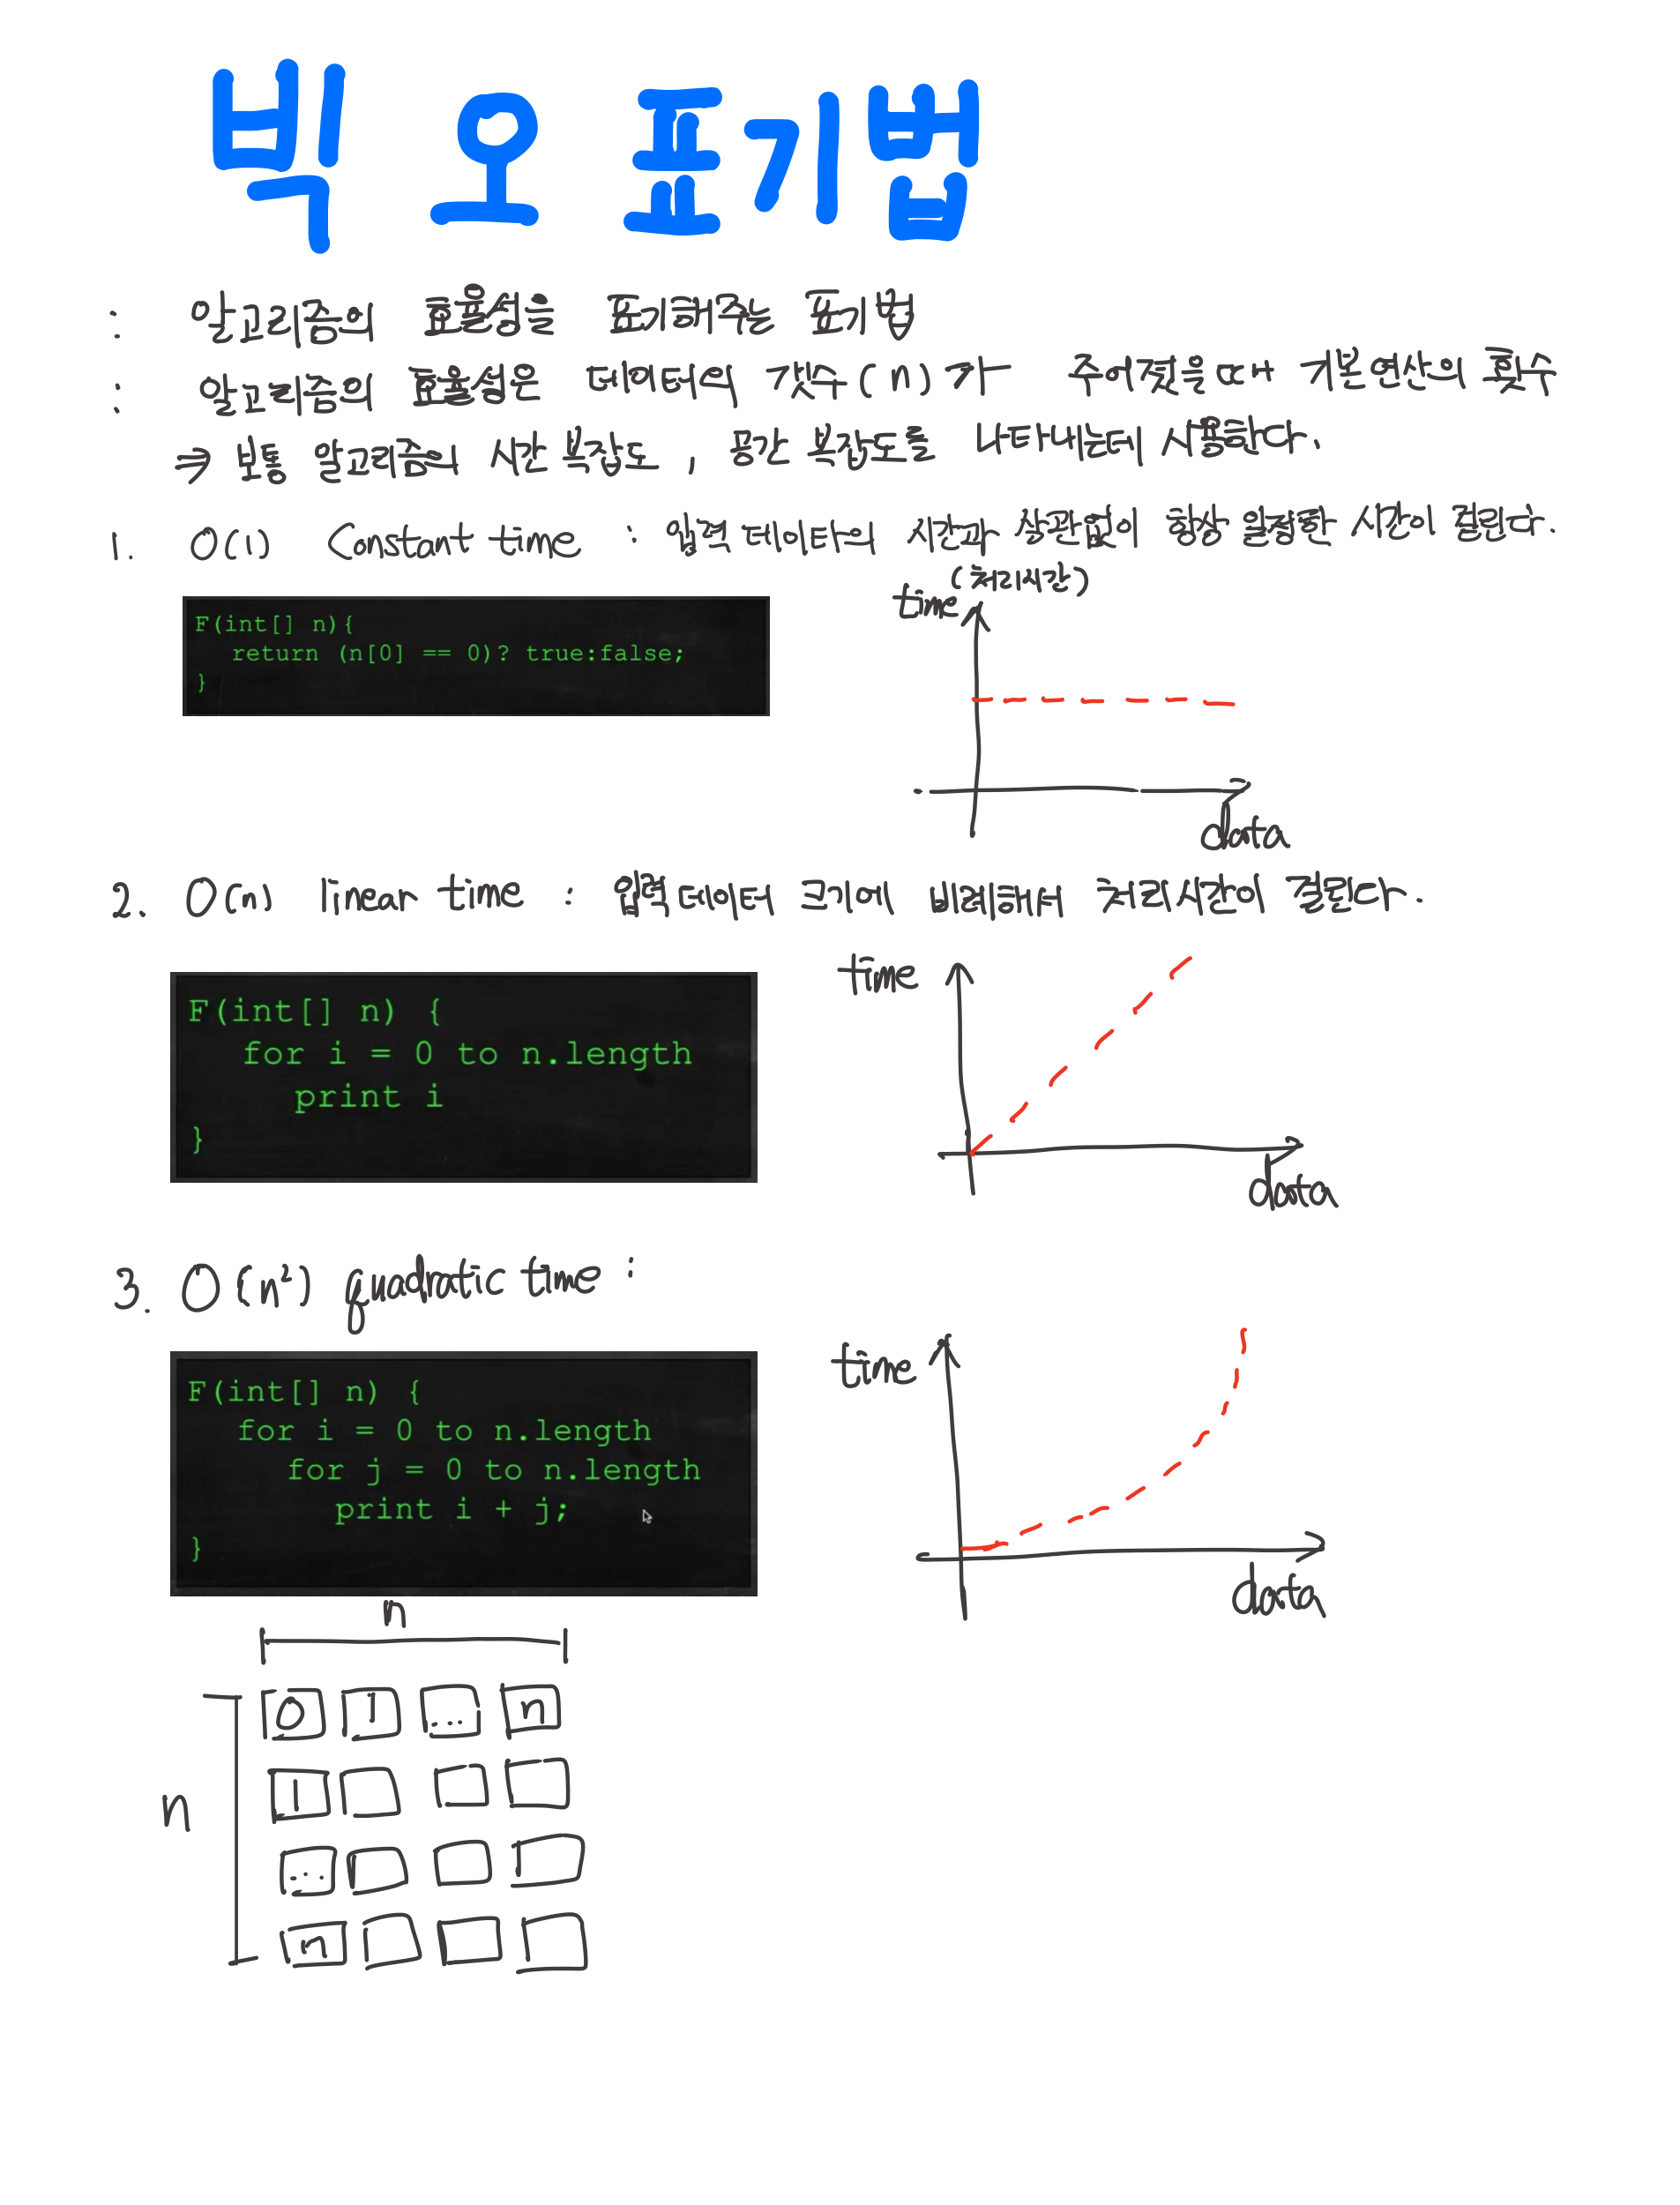 빅 오 표기법
: 알고리즘의 효율성을 표기해주는 표기법
: 알고리즘의 효율성은 데이터의 갯수(n)가 주어졌을때 기본연산의 횟수
⇒ 보통 알고리즘의 시간 복잡도, 공간 복잡도를 나타내는데 사용한다.
1. O(1) Constant time : 입력 데이타의 시간과 상관없이 항상 일정한 시간이 걸린다.
F(int[] n){
return (n[0] == 0)? true:false;
}
time (처리시간)
data
2. O(n) linear time : 입력 데이터 크기에 비례해서 처리시간이 걸린다.
F(int[] n) {
for i = 0 to n.length
print i
}
time
data
3. O(n²) quadratic time :
F(int[] n) {
for i = 0 to n.length
for j = 0 to n.length
print i + j;
}
time
data
n
n
0 1 ... n
1
...
n